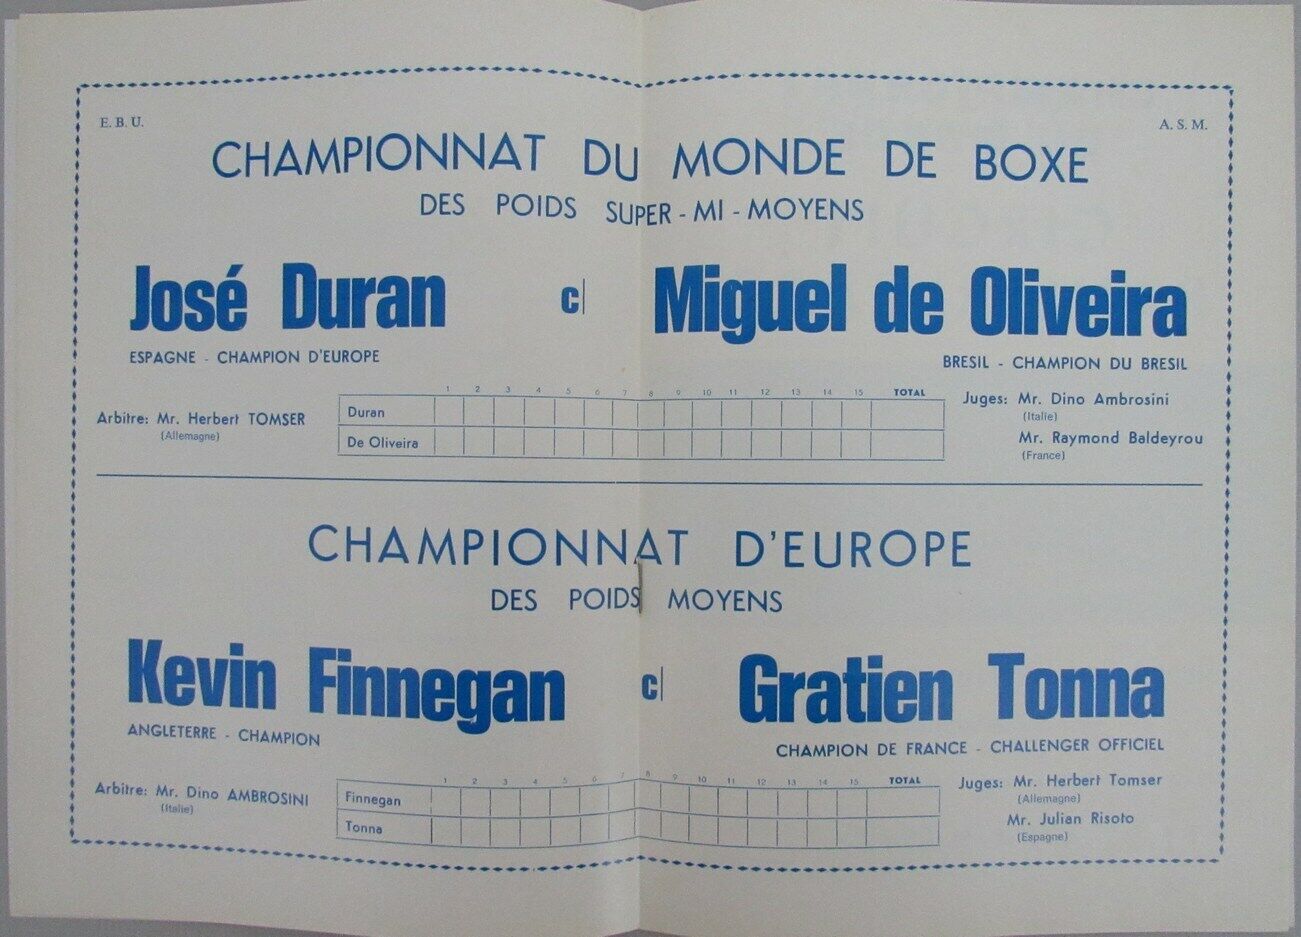 E. B. U. A. S. M.
CHAMPIONNAT DU MONDE DE BOXE
DES POIDS SUPER - MI - MOYENS
José Duran c/ Miguel de Oliveira
ESPAGNE - CHAMPION D'EUROPE BRESIL - CHAMPION DU BRESIL
1 2 3 4 5 6 7 8 9 10 11 12 13 14 15 TOTAL
Arbitre: Mr. Herbert TOMSER
(Allemagne)
Duran
De Oliveira
Juges: Mr. Dino Ambrosini
(Italie)
Mr. Raymond Baldeyrou
(France)
CHAMPIONNAT D'EUROPE
DES POIDS MOYENS
Kevin Finnegan c/ Gratien Tonna
ANGLETERRE - CHAMPION CHAMPION DE FRANCE - CHALLENGER OFFICIEL
1 2 3 4 5 6 7 8 9 10 11 12 13 14 15 TOTAL
Arbitre: Mr. Dino AMBROSINI
(Italie)
Finnegan
Tonna
Juges: Mr. Herbert Tomser
(Allemagne)
Mr. Julian Risoto
(Espagne)